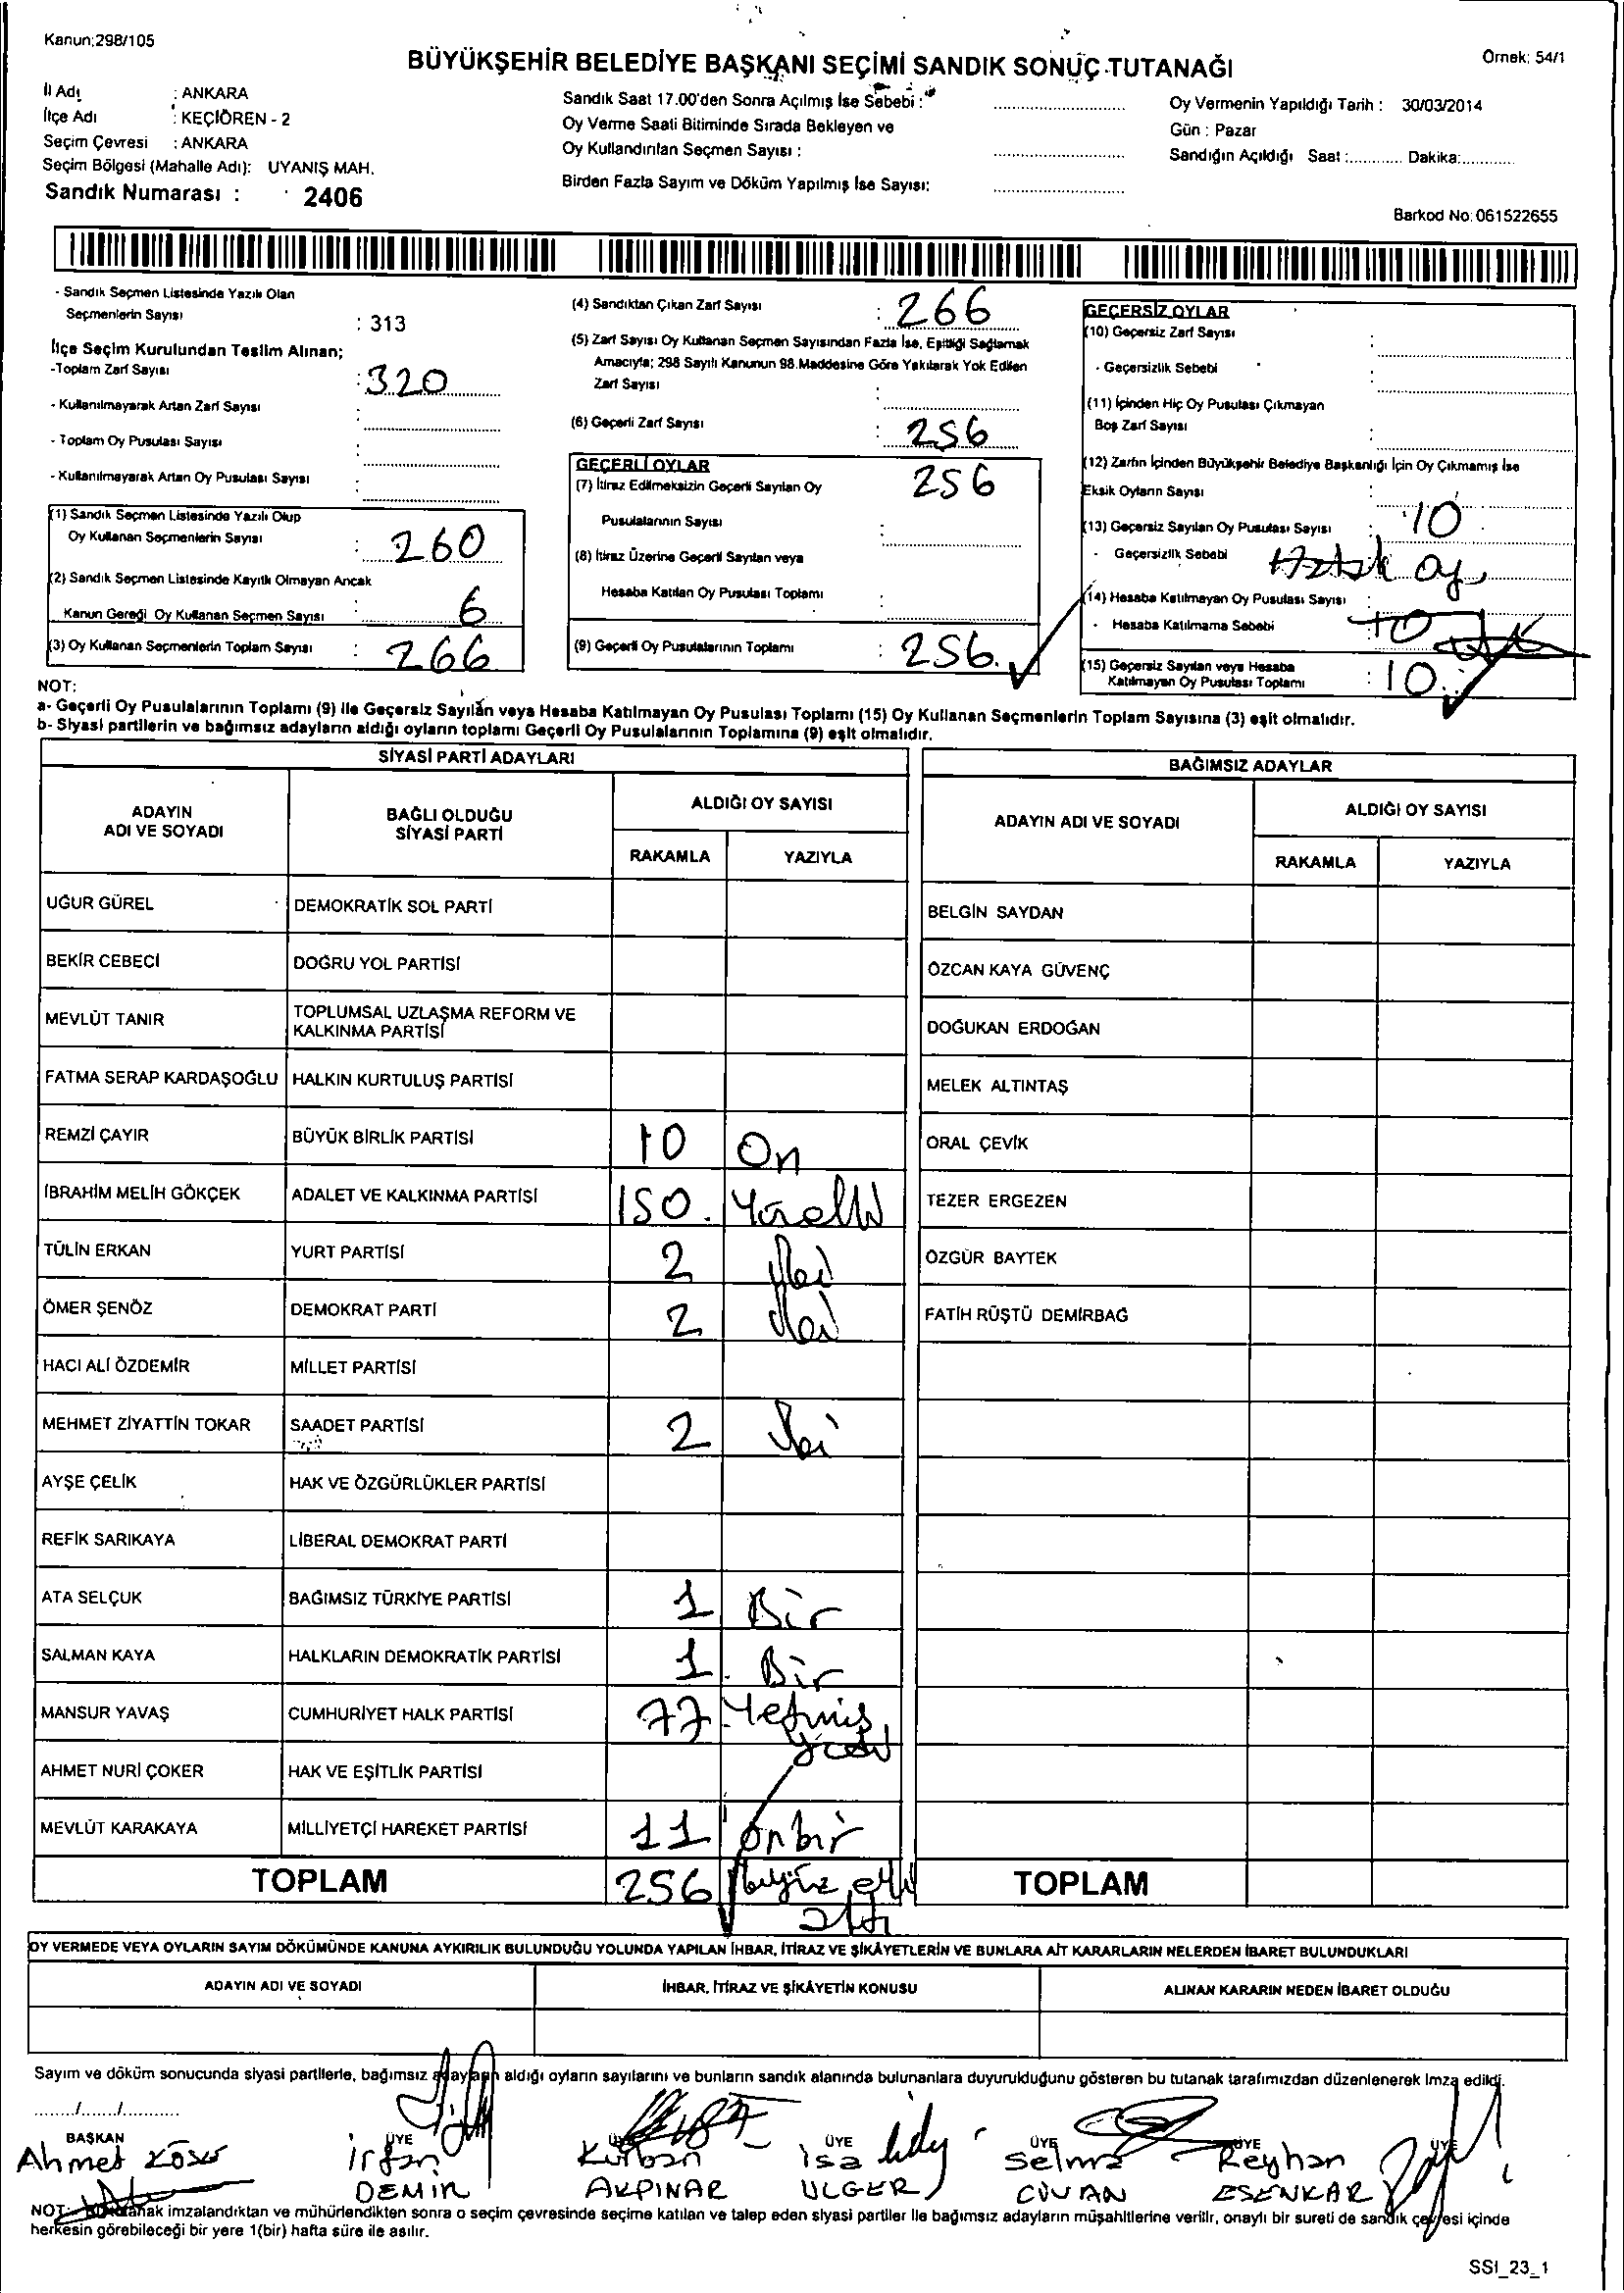 Kanun;298/105
Örnek: 54/1
BÜYÜKŞEHİR BELEDİYE BAŞKANI SEÇİMİ SANDIK SONUÇ TUTANAĞI
İl Adı : ANKARA
İlçe Adı : KEÇİÖREN - 2
Seçim Çevresi : ANKARA
Seçim Bölgesi (Mahalle Adı): UYANIŞ MAH.
Sandık Numarası : 2406
Sandık Saat 17.00'den Sonra Açılmış İse Sebebi :
Oy Verme Saati Bitiminde Sırada Bekleyen ve
Oy Kullandırılan Seçmen Sayısı :
Birden Fazla Sayım ve Döküm Yapılmış İse Sayısı:
Oy Vermenin Yapıldığı Tarih : 30/03/2014
Gün : Pazar
Sandığın Açıldığı Saat :............ Dakika:............
Barkod No: 061522655
- Sandık Seçmen Listesinde Yazılı Olan
Seçmenlerin Sayısı : 313
İlçe Seçim Kurulundan Teslim Alınan;
-Toplam Zarf Sayısı : 320
- Kullanılmayarak Artan Zarf Sayısı :
- Toplam Oy Pusulası Sayısı :
- Kullanılmayarak Artan Oy Pusulası Sayısı :
(1) Sandık Seçmen Listesinde Yazılı Olup
Oy Kullanan Seçmenlerin Sayısı : 260
(2) Sandık Seçmen Listesinde Kayıtlı Olmayan Ancak
Kanun Gereği Oy Kullanan Seçmen Sayısı : 6
(3) Oy Kullanan Seçmenlerin Toplam Sayısı : 266
(4) Sandıktan Çıkan Zarf Sayısı : 266
(5) Zarf Sayısı Oy Kullanan Seçmen Sayısından Fazla İse, Eşitliği Sağlamak
Amacıyla; 298 Sayılı Kanunun 98.Maddesine Göre Yakılarak Yok Edilen
Zarf Sayısı :
(6) Geçerli Zarf Sayısı : 256
GEÇERLİ OYLAR
(7) İtiraz Edilmeksizin Geçerli Sayılan Oy 256
Pusulalarının Sayısı :
(8) İtiraz Üzerine Geçerli Sayılan veya
Hesaba Katılan Oy Pusulası Toplamı :
(9) Geçerli Oy Pusulalarının Toplamı : 256.
GEÇERSİZ OYLAR
(10) Geçersiz Zarf Sayısı :
- Geçersizlik Sebebi :
(11) İçinden Hiç Oy Pusulası Çıkmayan
Boş Zarf Sayısı :
(12) Zarfın İçinden Büyükşehir Belediye Başkanlığı İçin Oy Çıkmamış İse
Eksik Oyların Sayısı :
(13) Geçersiz Sayılan Oy Pusulası Sayısı : 10
- Geçersizlik Sebebi oy
(14) Hesaba Katılmayan Oy Pusulası Sayısı :
- Hesaba Katılmama Sebebi : 10
(15) Geçersiz Sayılan veya Hesaba
Katılmayan Oy Pusulası Toplamı : 10
NOT:
a- Geçerli Oy Pusulalarının Toplamı (9) ile Geçersiz Sayılan veya Hesaba Katılmayan Oy Pusulası Toplamı (15) Oy Kullanan Seçmenlerin Toplam Sayısına (3) eşit olmalıdır.
b- Siyasi partilerin ve bağımsız adayların aldığı oyların toplamı Geçerli Oy Pusulalarının Toplamına (9) eşit olmalıdır.
SİYASİ PARTİ ADAYLARI
ADAYIN ADI VE SOYADI
BAĞLI OLDUĞU SİYASİ PARTİ
ALDIĞI OY SAYISI
RAKAMLA YAZIYLA
UĞUR GÜREL DEMOKRATİK SOL PARTİ
BEKİR CEBECİ DOĞRU YOL PARTİSİ
MEVLÜT TANIR TOPLUMSAL UZLAŞMA REFORM VE
KALKINMA PARTİSİ
FATMA SERAP KARDAŞOĞLU HALKIN KURTULUŞ PARTİSİ
REMZİ ÇAYIR BÜYÜK BİRLİK PARTİSİ 10 On
İBRAHİM MELİH GÖKÇEK ADALET VE KALKINMA PARTİSİ 150. Yüzelli
TÜLİN ERKAN YURT PARTİSİ 2 İki
ÖMER ŞENÖZ DEMOKRAT PARTİ 2 İki
HACI ALİ ÖZDEMİR MİLLET PARTİSİ
MEHMET ZİYATTİN TOKAR SAADET PARTİSİ 2 İki
AYŞE ÇELİK HAK VE ÖZGÜRLÜKLER PARTİSİ
REFİK SARIKAYA LİBERAL DEMOKRAT PARTİ
ATA SELÇUK BAĞIMSIZ TÜRKİYE PARTİSİ 1 Bir
SALMAN KAYA HALKLARIN DEMOKRATİK PARTİSİ 1 Bir
MANSUR YAVAŞ CUMHURİYET HALK PARTİSİ 77 Yetmiş
yedi
AHMET NURİ ÇOKER HAK VE EŞİTLİK PARTİSİ
MEVLÜT KARAKAYA MİLLİYETÇİ HAREKET PARTİSİ 11 onbir
TOPLAM 256 ikiyüz elli
altı
BAĞIMSIZ ADAYLAR
ADAYIN ADI VE SOYADI
ALDIĞI OY SAYISI
RAKAMLA YAZIYLA
BELGİN SAYDAN
ÖZCAN KAYA GÜVENÇ
DOĞUKAN ERDOĞAN
MELEK ALTINTAŞ
ORAL ÇEVİK
TEZER ERGEZEN
ÖZGÜR BAYTEK
FATİH RÜŞTÜ DEMİRBAĞ
TOPLAM
OY VERMEDE VEYA OYLARIN SAYIM DÖKÜMÜNDE KANUNA AYKIRILIK BULUNDUĞU YOLUNDA YAPILAN İHBAR, İTİRAZ VE ŞİKÂYETLERİN VE BUNLARA AİT KARARLARIN NELERDEN İBARET BULUNDUKLARI
ADAYIN ADI VE SOYADI
İHBAR, İTİRAZ VE ŞİKÂYETİN KONUSU
ALINAN KARARIN NEDEN İBARET OLDUĞU
Sayım ve döküm sonucunda siyasi partilerle, bağımsız adayların aldığı oyların sayılarını ve bunların sandık alanında bulunanlara duyurulduğunu gösteren bu tutanak tarafımızdan düzenlenerek imza edildi.
......../......./...........
BAŞKAN ÜYE ÜYE ÜYE ÜYE ÜYE ÜYE
Ahmet KÖSE İrfan Kurban İsa Selma Reyhan
DEMİR AKPINAR ULGER CÜVAN ESENKAR
NOT: Bu tutanak imzalandıktan ve mühürlendikten sonra o seçim çevresinde seçime katılan ve talep eden siyasi partiler ile bağımsız adayların müşahitlerine verilir, onaylı bir sureti de sandık çevresi içinde
herkesin görebileceği bir yere 1(bir) hafta süre ile asılır.
SSI_23_1